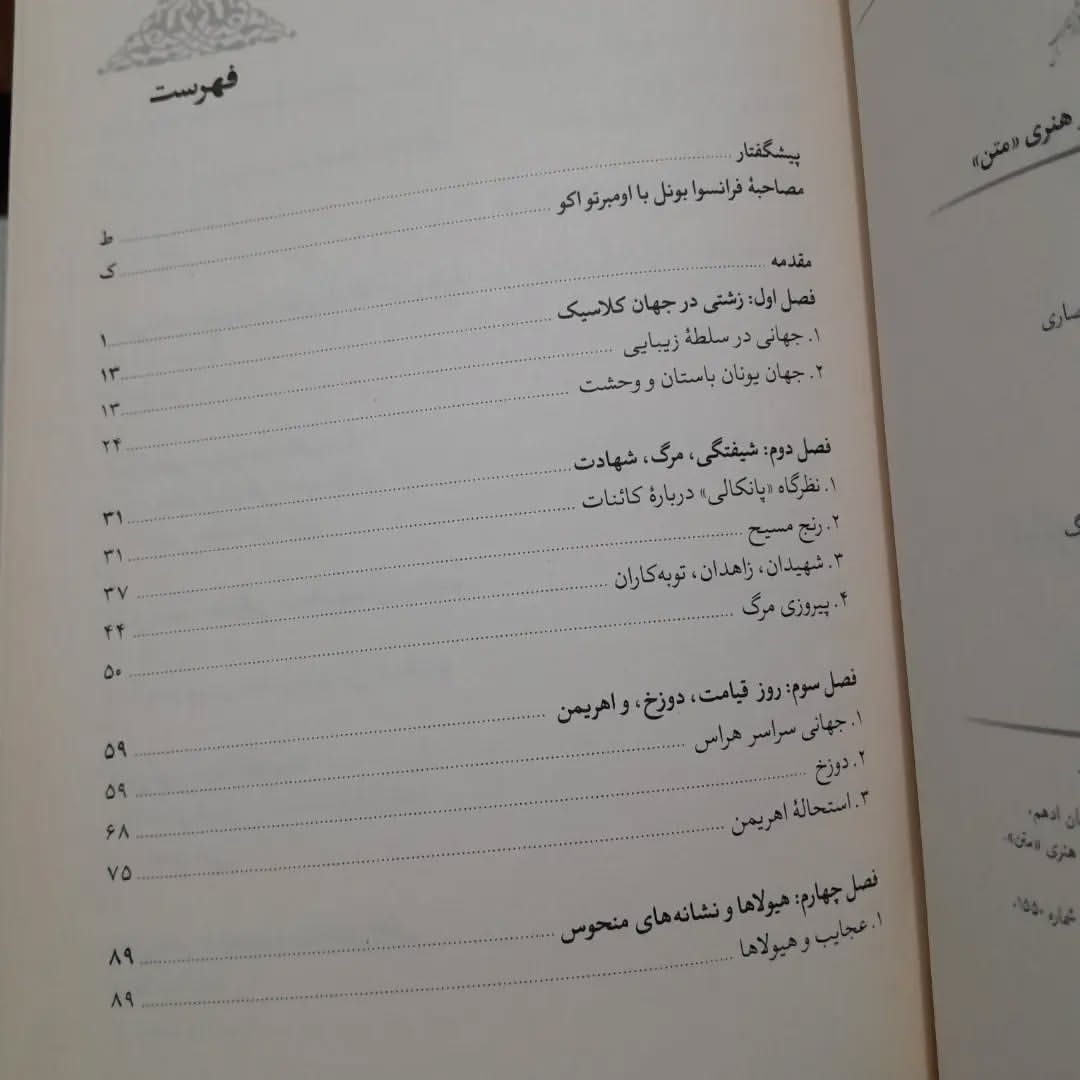 فهرست
پیشگفتار ........ ط
مصاحبهٔ فرانسوا بونل با اومبرتو اکو ........ ک
مقدمه ........ ۱
فصل اول: زشتی در جهان کلاسیک ........ ۱۳
۱. جهانی در سلطهٔ زیبایی ........ ۱۳
۲. جهان یونان باستان و وحشت ........ ۲۴
فصل دوم: شیفتگی، مرگ، شهادت ........ ۳۱
۱. نظرگاه «پانکالی» دربارهٔ کائنات ........ ۳۱
۲. رنج مسیح ........ ۳۷
۳. شهیدان، زاهدان، توبه‌کاران ........ ۴۴
۴. پیروزی مرگ ........ ۵۰
فصل سوم: روز قیامت، دوزخ، و اهریمن ........ ۵۹
۱. جهانی سراسر هراس ........ ۵۹
۲. دوزخ ........ ۶۸
۳. استحالهٔ اهریمن ........ ۷۵
فصل چهارم: هیولاها و نشانه‌های منحوس ........ ۸۹
۱. عجایب و هیولاها ........ ۸۹
هنری «متن»
ادهم.
هنری «متن».
شماره ۱۵۵۰.